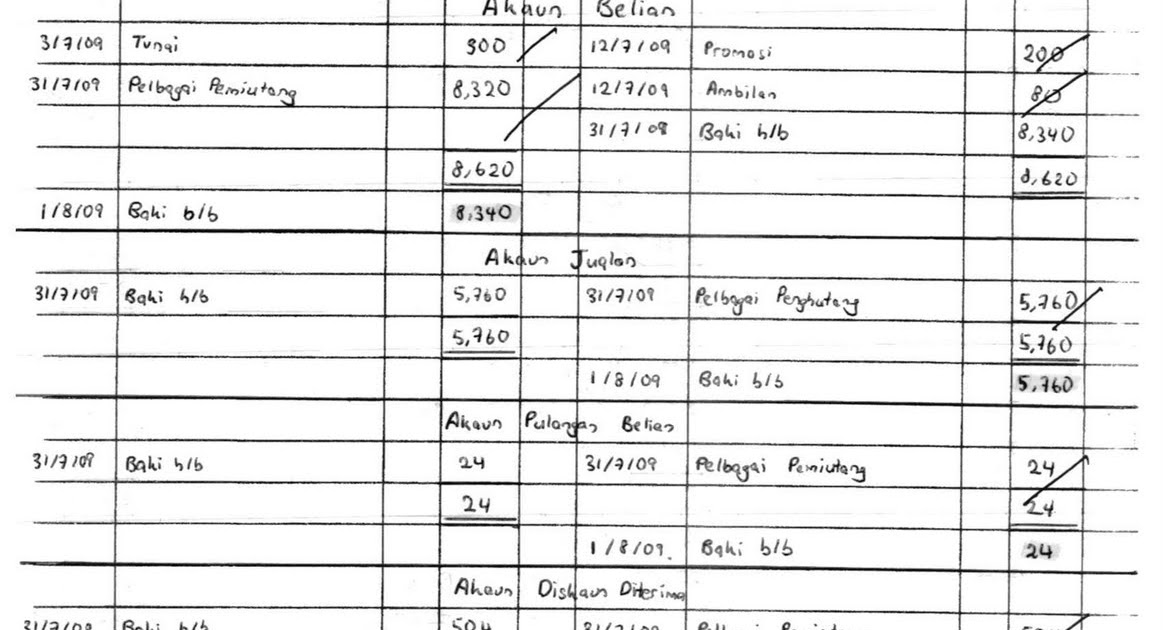 Akaun Belian
3/7/09 Tunai 300 12/7/09 Promosi 200
31/7/09 Pelbagai Pemiutang 8,320 12/7/09 Ambilan 80
31/7/09 Baki h/b 8,340
8,620 8,620
1/8/09 Baki b/b 8,340
Akaun Jualan
31/7/09 Baki h/b 5,760 31/7/09 Pelbagai Penghutang 5,760
5,760 5,760
1/8/09 Baki b/b 5,760
Akaun Pulangan Belian
31/7/09 Baki h/b 24 31/7/09 Pelbagai Pemiutang 24
24 24
1/8/09. Baki b/b 24
Akaun Diskaun Diterima
31/7/09 Baki h/b 504 31/7/09